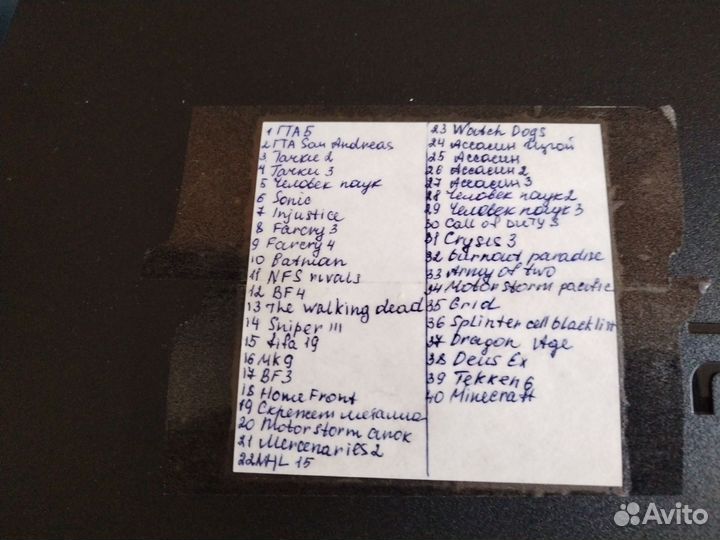 1 ГТА 5
2 ГТА San Andreas
3 Тачки 2
4 Тачки 3
5 Человек паук
6 Sonic
7 Injustice
8 Farcry 3
9 Farcry 4
10 Batman
11 NFS rivals
12 BF4
13 The walking dead
14 Sniper III
15 fifa 19
16 MK9
17 BF3
18 Home Front
19 Скрежет металла
20 Motorstorm апок
21 Mercenaries 2
22 NHL 15
23 Watch Dogs
24 Ассасин
25 Ассасин
26 Ассасин 2
27 Ассасин 3
28 Человек паук 2
29 Человек паук 3
30 Call of Duty 3
31 Crysis 3
32 Burnout paradise
33 Army of two
34 Motorstorm pacific
35 Grid
36 Splinter cell blacklist
37 Dragon Age
38 Deus Ex
39 Tekken 6
40 Minecraft
Avito